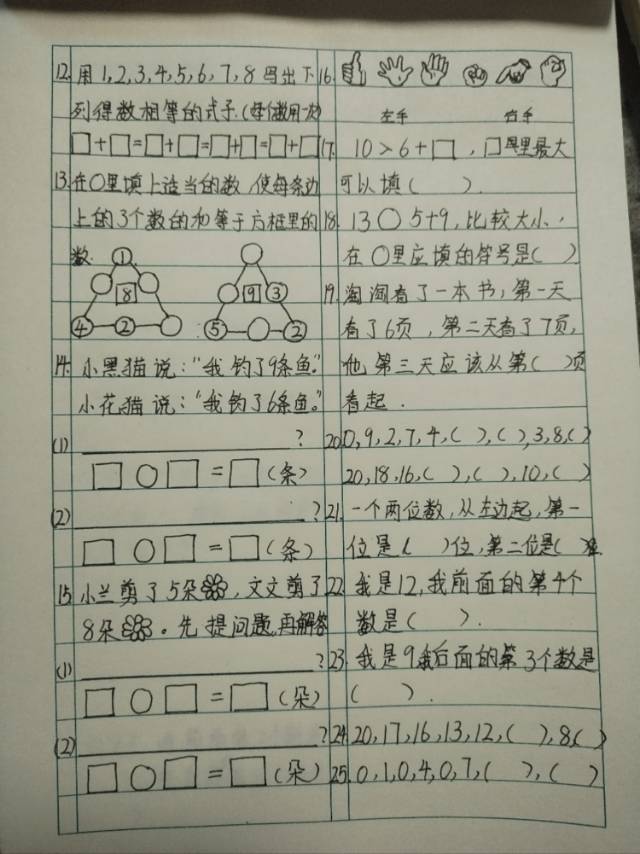 12. 用1,2,3,4,5,6,7,8写出下
列得数相等的式子.(每个数用一次)
□+□=□+□=□+□=□+□
13. 在○里填上适当的数,使每条边
上的3个数的和等于方框里的
数.
1
8
4 2
9 3
5 2
14. 小黑猫说:“我钓了9条鱼.”
小花猫说:“我钓了6条鱼.”
(1) ?
□○□=□(条)
(2) ?
□○□=□(条)
15. 小兰剪了5朵,文文剪了
8朵。先提问题,再解答
(1) ?
□○□=□(朵)
(2) ?
□○□=□(朵)
16.
左手 右手
17. 10>6+□,□里最大
可以填( ).
18. 13○5+9,比较大小,
在○里应填的符号是( )
19. 淘淘看了一本书,第一天
看了6页,第二天看了7页,
他第三天应该从第( )页
看起.
20. 0,9,2,7,4,( ),( ),3,8,( )
20,18,16,( ),( ),10,( )
21. 一个两位数,从左边起,第一
位是( )位,第二位是( )位.
22. 我是12,我前面的第4个
数是( ).
23. 我是9我后面的第3个数是
( ).
24. 20,17,16,13,12,( ),8,( )
25. 0,1,0,4,0,7,( ),( )